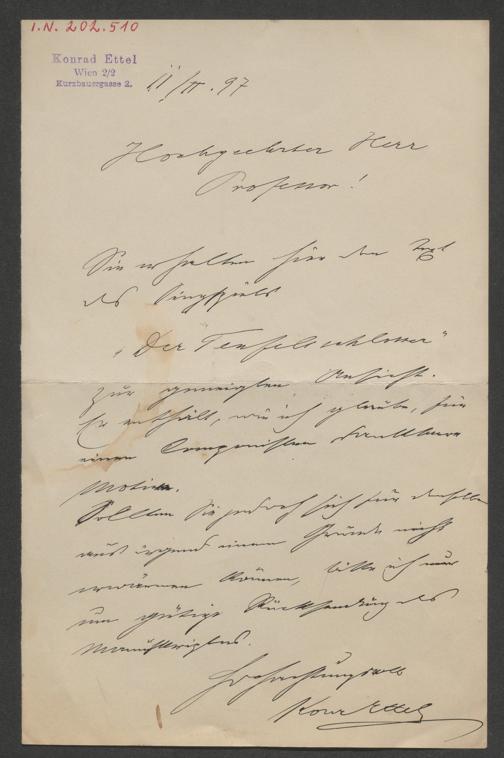 I.N. 202.510
Konrad Ettel
Wien 2/2
Kurzbauergasse 2.
11/II. 97
Hochgeehrter Herr
Professor!
Sie erhalten hier den Text
des Singspiels
„Der Teufelsschlosser"
zur geneigten Ansicht.
Er enthält, wie ich glaube, für
einen Componisten dankbare
Motive.
Sollten Sie jedoch sich für denselben
aus irgend einem Grunde nicht
erwärmen können, bitte ich nur
um gütige Rücksendung des
Manuskriptes.
Hochachtungsvoll
Konr Ettel